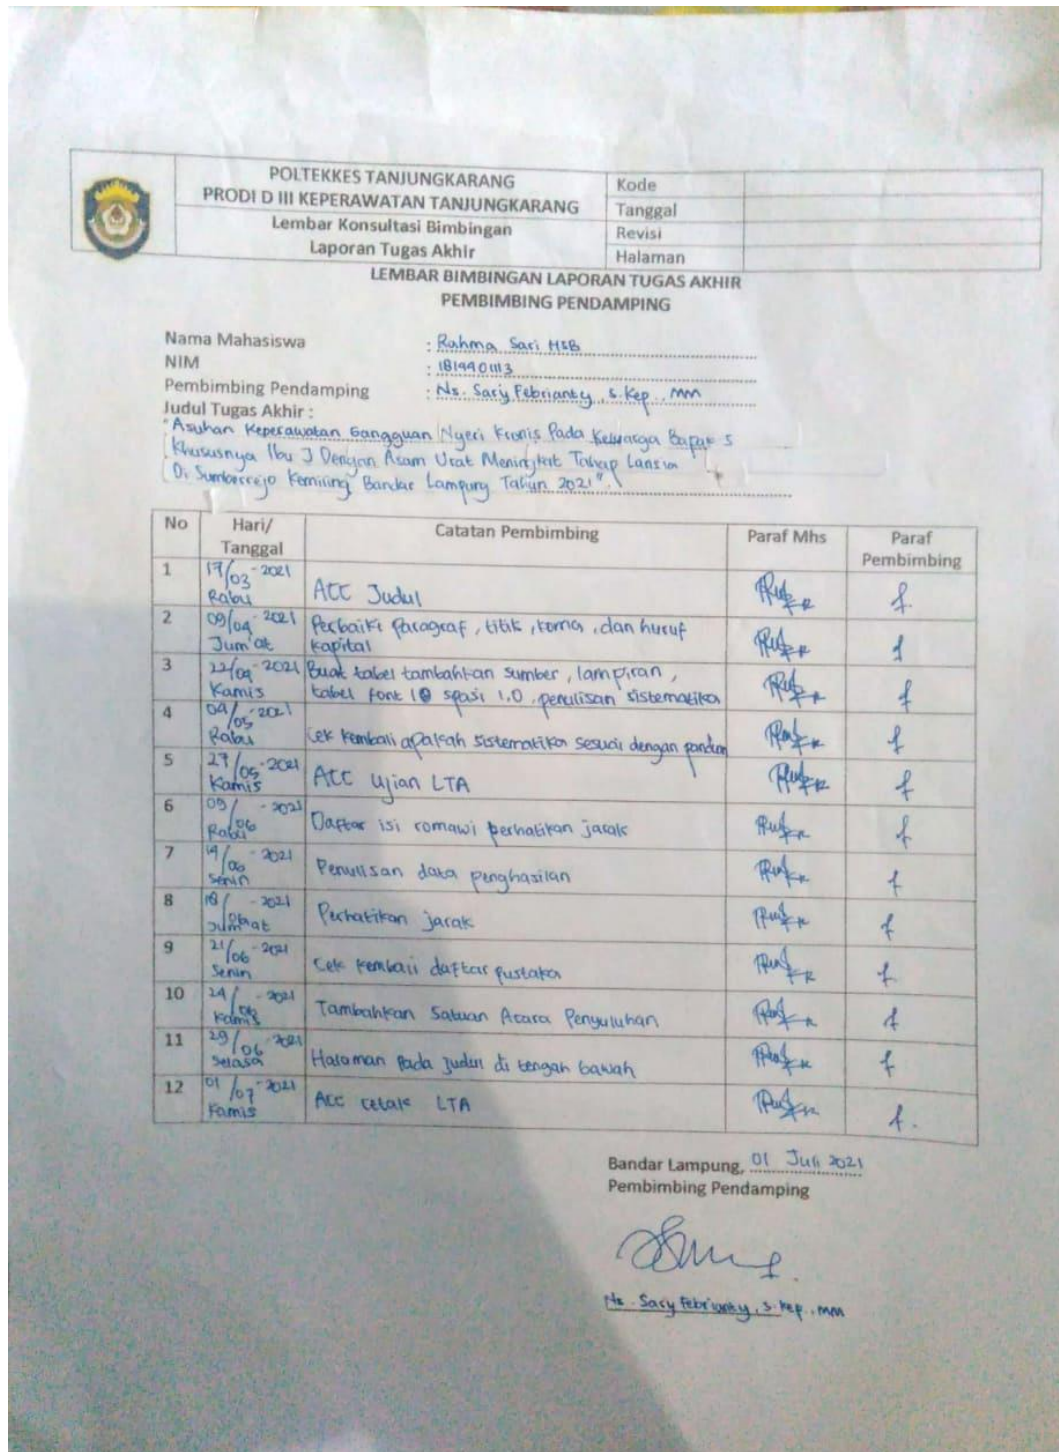 POLTEKKES TANJUNGKARANG
PRODI D III KEPERAWATAN TANJUNGKARANG
Lembar Konsultasi Bimbingan
Laporan Tugas Akhir
Kode
Tanggal
Revisi
Halaman
LEMBAR BIMBINGAN LAPORAN TUGAS AKHIR
PEMBIMBING PENDAMPING
Nama Mahasiswa : Rahma Sari HSB
NIM : 1814401113
Pembimbing Pendamping : Ns. Sary Febrianty, S.Kep., MM
Judul Tugas Akhir :
"Asuhan Keperawatan Gangguan Nyeri Kronis Pada Keluarga Bapak S
Khususnya Ibu J Dengan Asam Urat Meningkat Tahap Lansia
Di Sumberrejo Kemiling Bandar Lampung Tahun 2021"
No Hari/ Tanggal Catatan Pembimbing Paraf Mhs Paraf Pembimbing
1 17/03-2021 Rabu ACC Judul
2 09/04-2021 Jum'at Perbaiki Paragraf, titik, koma, dan huruf
kapital
3 22/04-2021 Kamis Buat tabel tambahkan sumber, lampiran,
tabel font 10 spasi 1.0, penulisan sistematika
4 04/05-2021 Rabu Cek kembali apakah sistematika sesuai dengan panduan
5 27/05-2021 Kamis ACC Ujian LTA
6 09/06-2021 Rabu Daftar isi romawi perhatikan jarak
7 14/06-2021 Senin Penulisan data penghasilan
8 18/06-2021 Jumaat Perhatikan jarak
9 21/06-2021 Senin Cek kembali daftar pustaka
10 24/06-2021 Kamis Tambahkan Satuan Acara Penyuluhan
11 29/06-2021 Selasa Halaman Pada Judul di tengah bawah
12 01/07-2021 Kamis ACC cetak LTA
Bandar Lampung, 01 Juli 2021
Pembimbing Pendamping
Ns. Sary Febrianty, S.Kep., MM